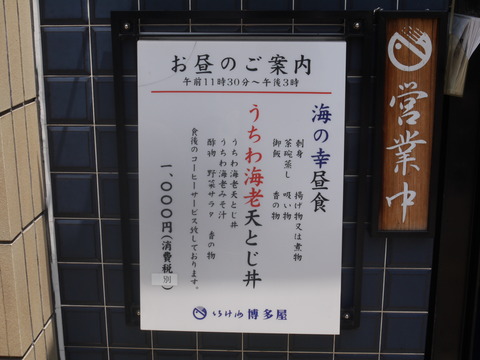 お昼のご案内
午前11時30分～午後3時
海の幸昼食
刺身 揚げ物又は煮物
茶碗蒸し 吸い物
御飯 香の物
うちわ海老天とじ丼
うちわ海老天とじ丼
うちわ海老みそ汁
酢物 野菜サラダ 香の物
食後のコーヒーサービス致しております。
一、〇〇〇円(消費税別)
いろは山 博多屋
営業中